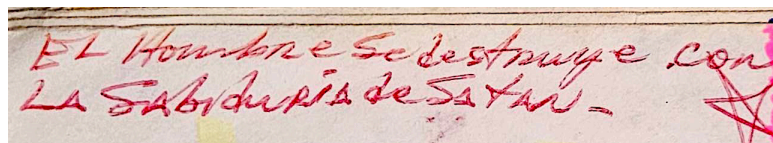 EL Hombre se destruye con
LA SAbiduRiA de SATAN-